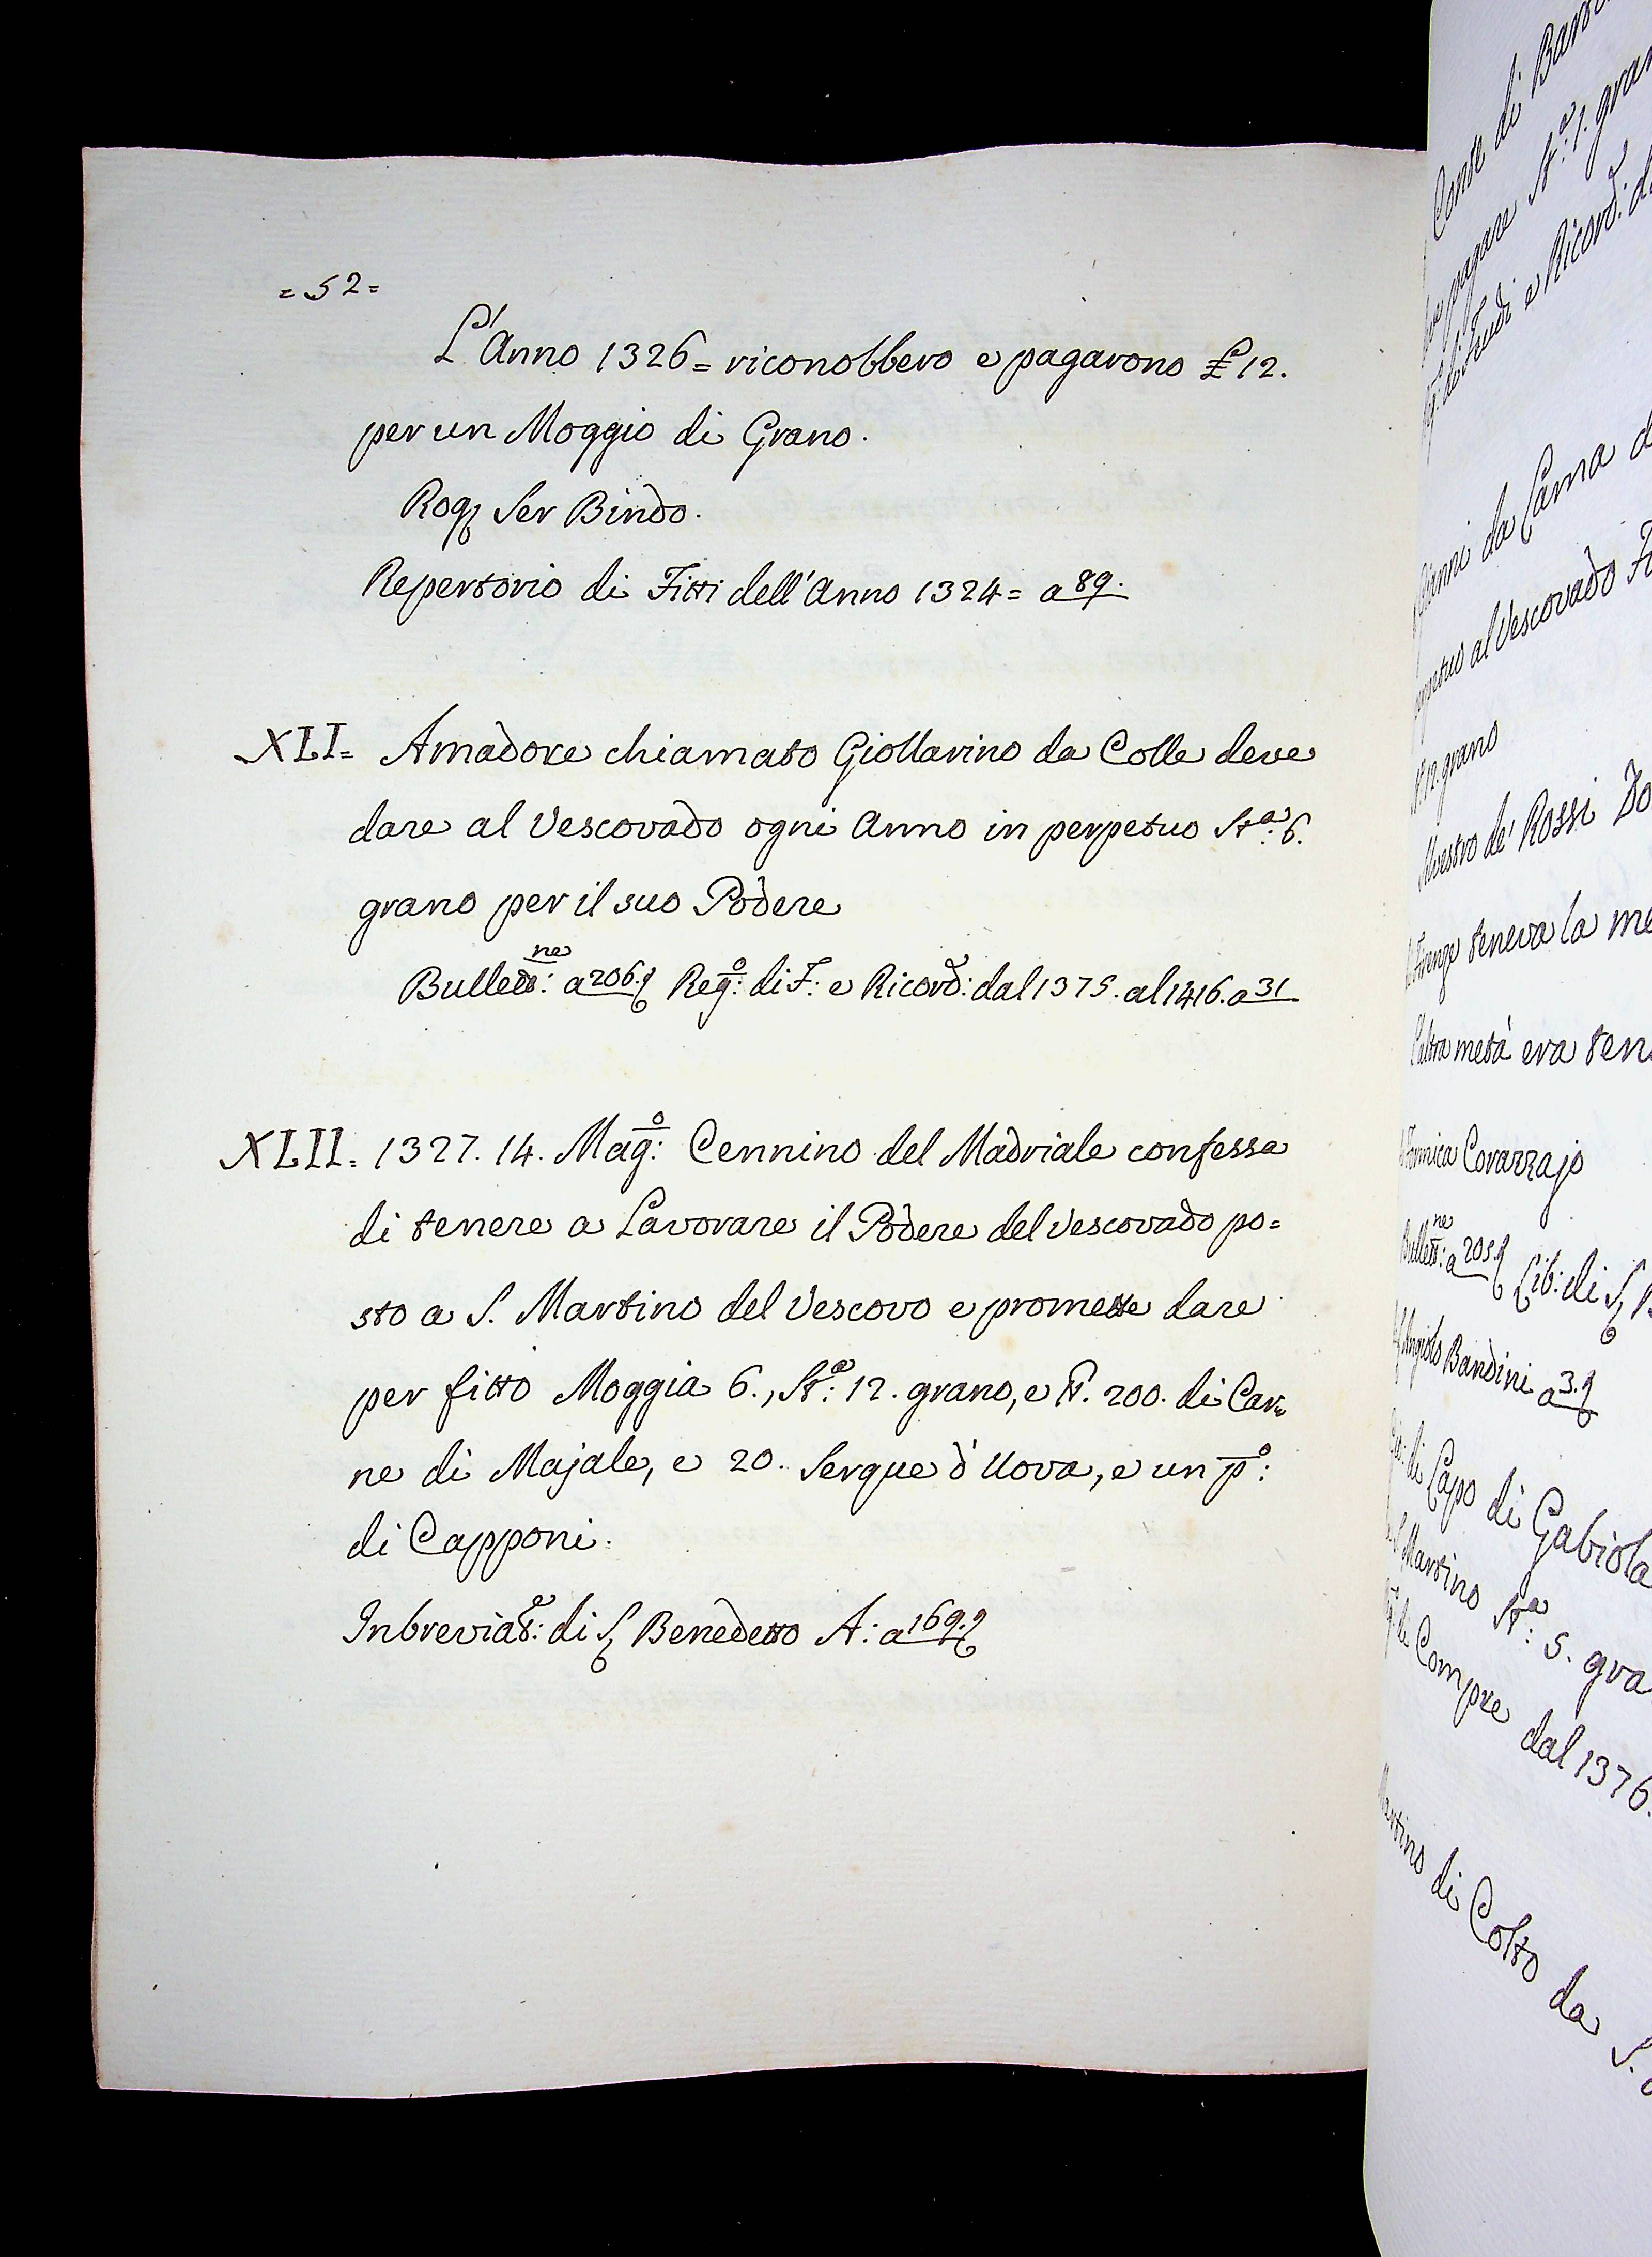 = 52 =
L'Anno 1326 = riconobbero e pagarono £ 12.
per un Moggio di Grano.
Rog. Ser Bindo.
Repertorio di Fitti dell'Anno 1324 = a 89.
XLI = Amadore chiamato Giollarino da Colle deve
dare al Vescovado ogni Anno in perpetuo St.ª 6.
grano per il suo Podere
Bullett:ne a 206. Reg:º di F: e Ricord:e dal 1375. al 1416. a 31
XLII = 1327. 14. Mag:º Cennino del Madriale confessa
di tenere a Lavorare il Podere del Vescovado po=
sto a S. Martino del Vescovo e promette dare
per fitto Moggia 6., St:ª 12. grano, e ℔. 200. di Car=
ne di Majale, e 20. Serque d'Uova, e un p:º
di Capponi.
Inbreviat:e di S. Benedetto A: a 169.
Conte di
pagare St:ª 1.
e Ricord:e
da Cama
al Vescovado
St. 12. grano
de' Rossi
teneva la
l'altra metà era
Covazzajo
Bullett:ne a 205. Lib: di S.
Angiolo Bandini a 3.
di Capo di Gabiola
S. Martino St:ª 5.
Compre dal 1376.
di Colto da S.